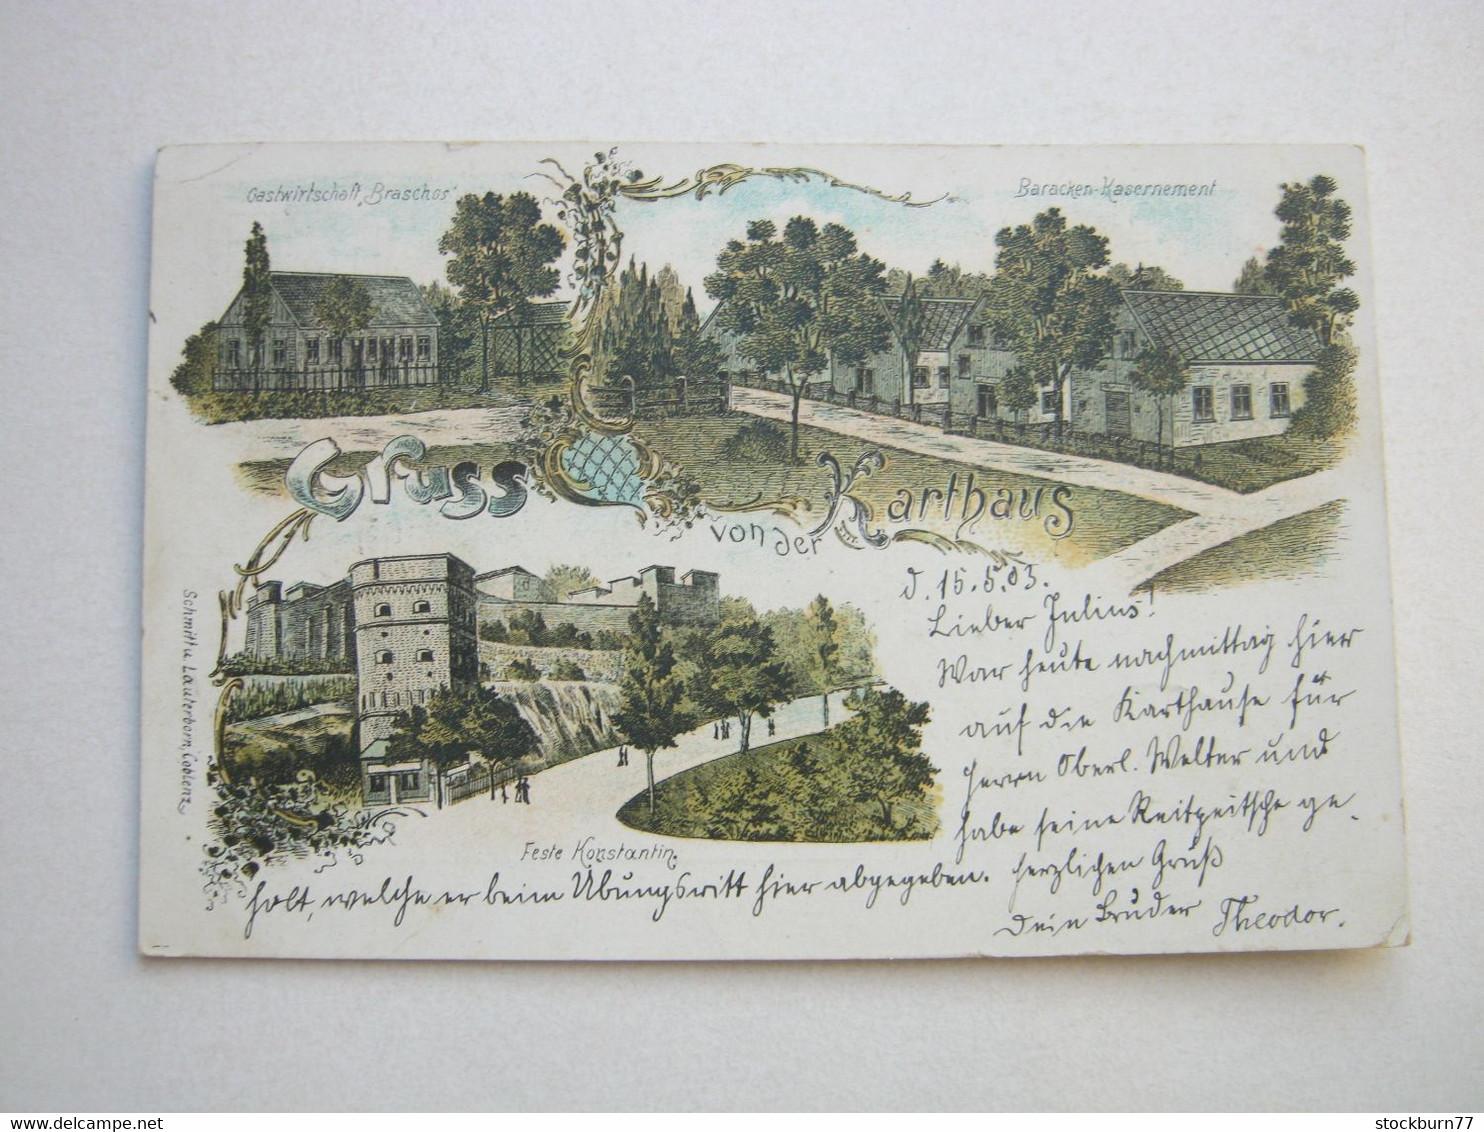 Gastwirtschaft „Braschos"
Baracken-Kasernement
Gruss
von der Karthaus
Schmitt u. Lauterborn, Coblenz
Feste Konstantin.
d. 15.5.03.
Lieber Julius!
War heute nachmittag hier
auf die Karthause für
Herrn Oberl. Welter und
habe seine Reitpeitsche ge-
holt, welche er beim Übungsritt hier abgegeben. Herzlichen Gruß
Dein Bruder Theodor.
stockburn77